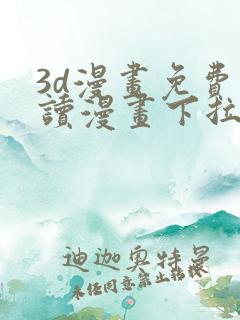 3d漫畫免費
讀漫畫下拉
迪迦奥特曼
未經同意禁止轉載